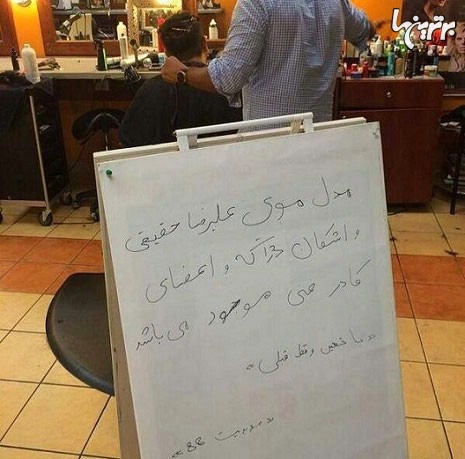 برترینها
مدل موی علیرضا حقیقی
و اشکان دژاگه و اعضای
کادر فنی موجود می باشد
« با تعیین وقت قبلی »
« مدیریت